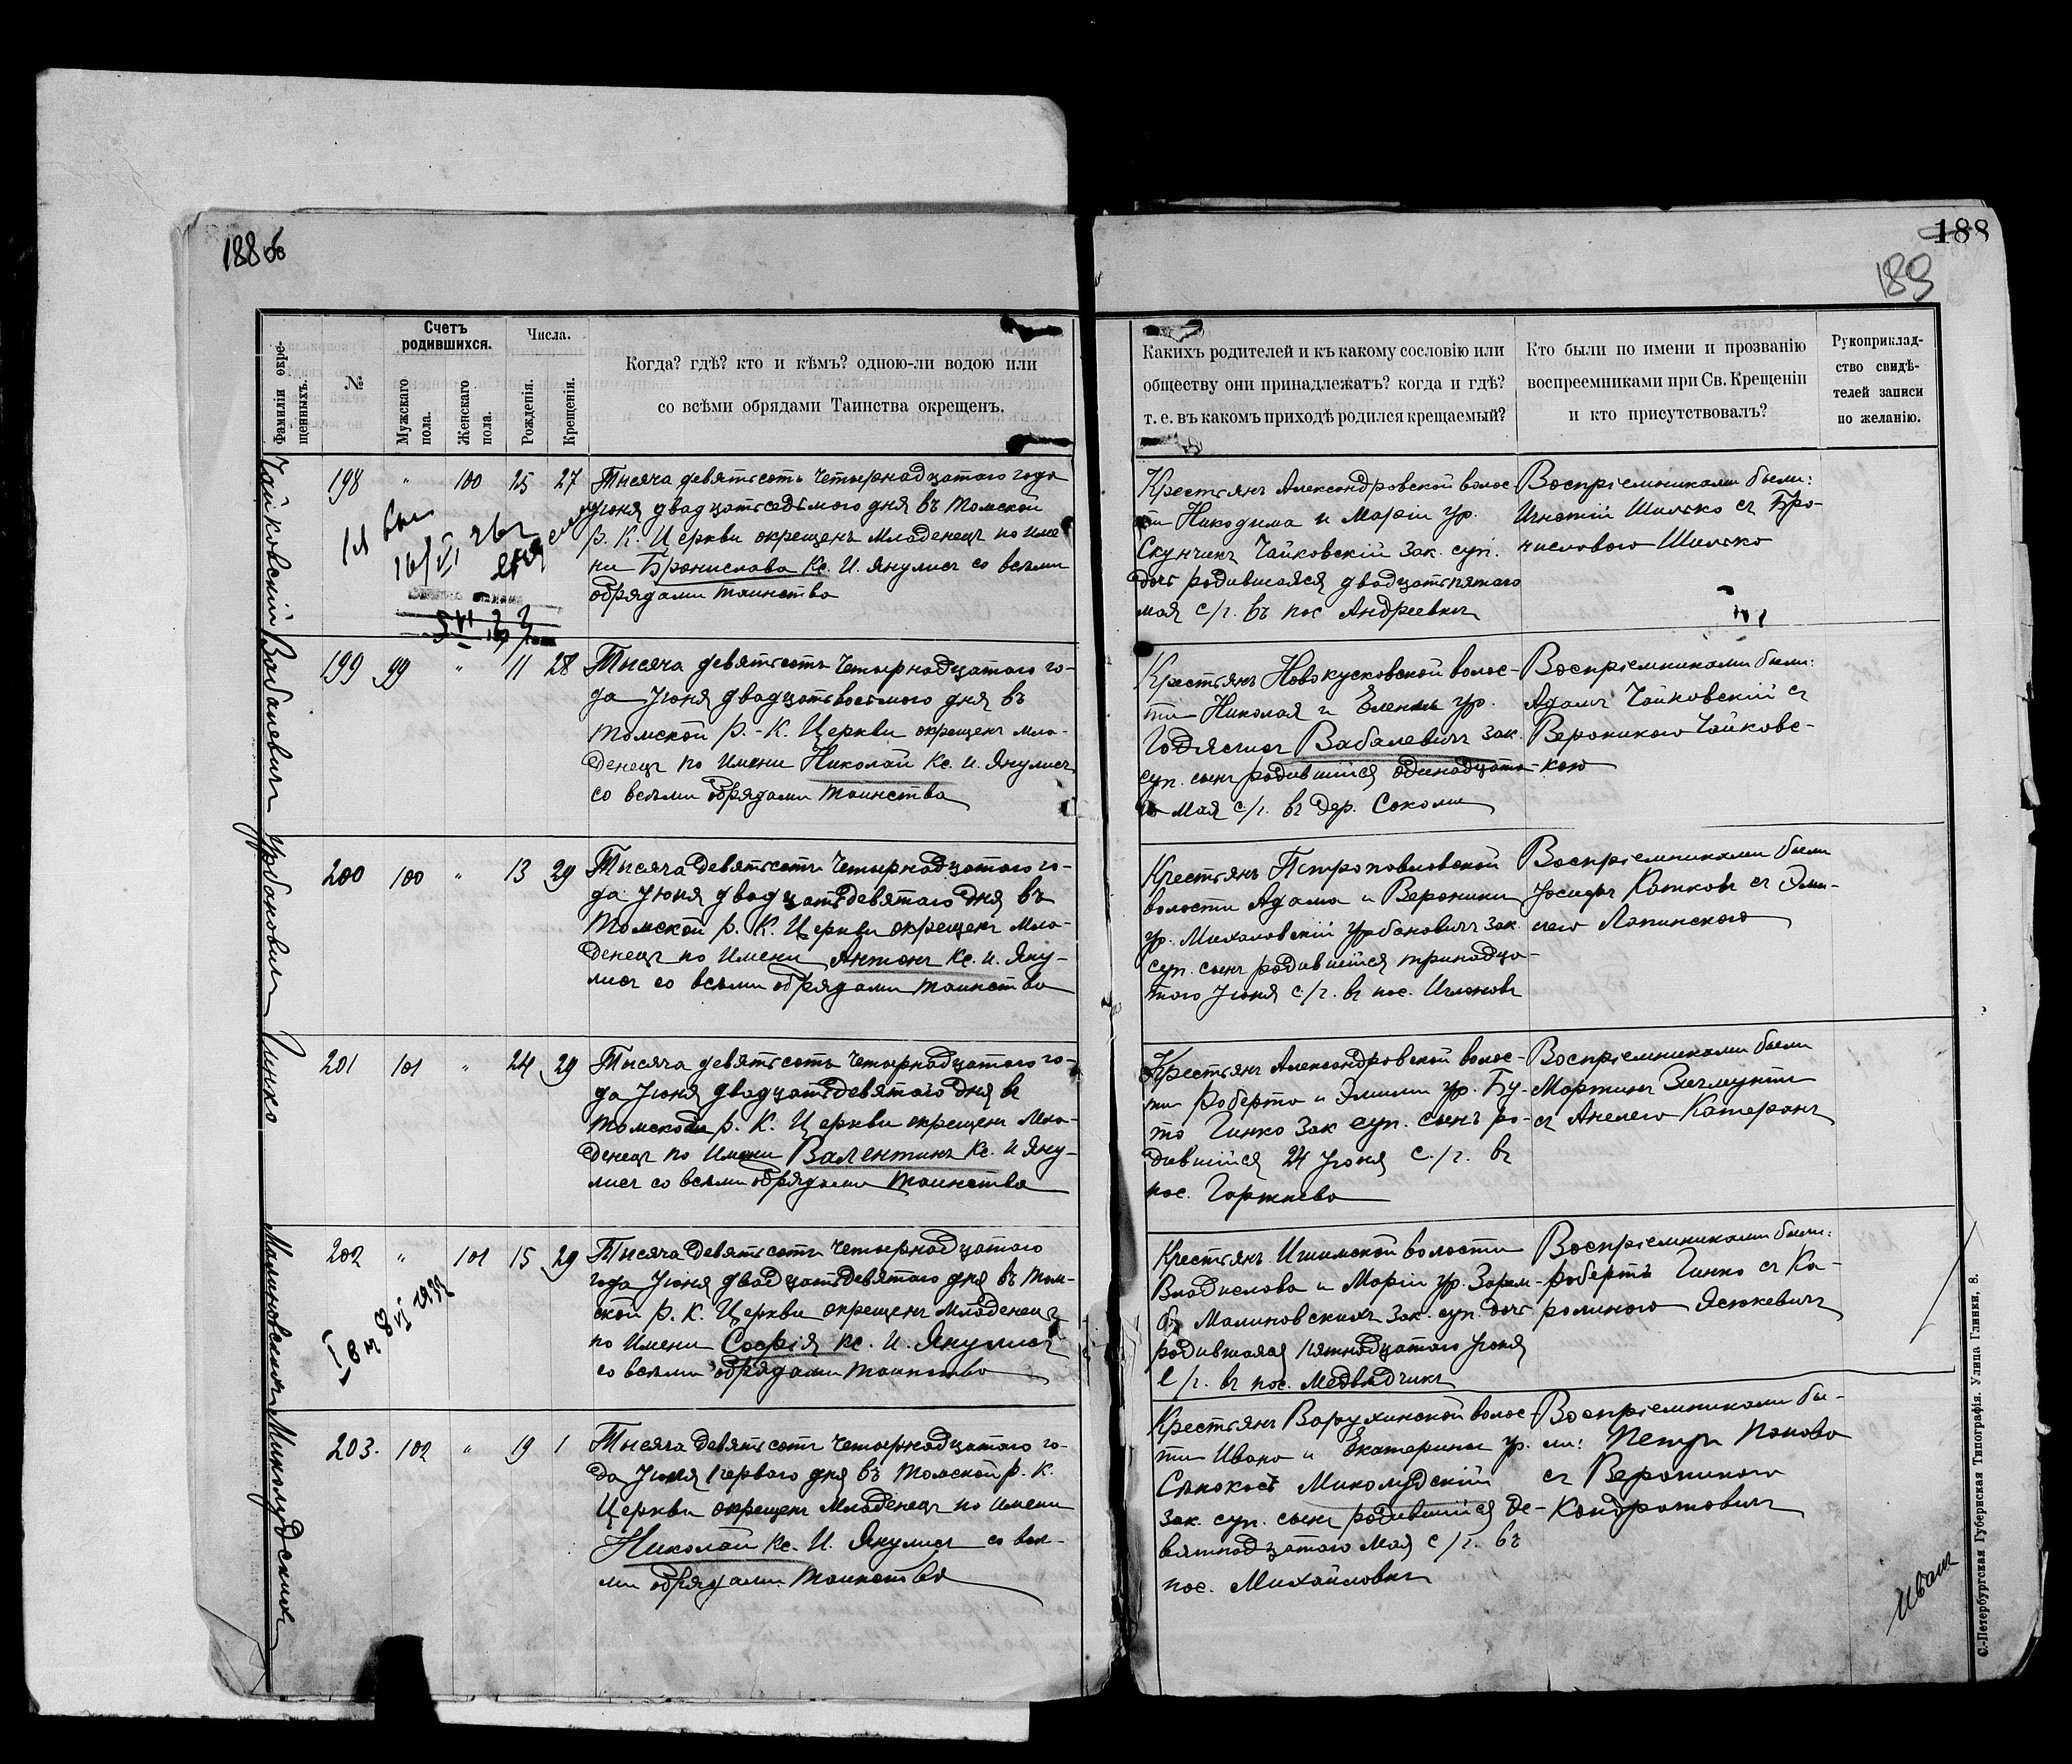 188 об
188
189
Фамиліи окре-
щенныхъ.
№
Счетъ
родившихся.
Мужскаго
пола.
Женскаго
пола.
Числа.
Рожденія.
Крещенія.
Когда? гдѣ? кто и кѣмъ? одною-ли водою или
со всѣми обрядами Таинства окрещенъ.
Какихъ родителей и къ какому сословію или
обществу они принадлежатъ? когда и гдѣ?
т. е. въ какомъ приходѣ родился крещаемый?
Кто были по имени и прозванію
воспреемниками при Св. Крещеніи
и кто присутствовалъ?
Рукоприклад-
ство свидѣ-
телей записи
по желанію.
Чайковскій
198 " 100 25 27
Тысяча девятьсотъ четырнадцатаго года
Іюня двадцатьседьмого дня въ Томской
Р. К. Церкви окрещенъ Младенецъ по име-
ни Бронислава Кс. И. Янулисъ со всѣми
обрядами таинства
Крестьянъ Александровской волос-
ти Никодима и Маріи ур.
Скунчикъ Чайковскій зак. суп.
дочь родившаяся двадцатьпятаго
мая с/г. въ пос Андреевкѣ
Воспріемниками были:
Игнатій Шилько съ Бро-
ниславою Шилько
Вабалевичъ
199 99 " 11 28
Тысяча девятьсотъ четырнадцатаго го-
да Іюня двадцатьвосьмого дня въ
Томской Р.-К. Церкви окрещенъ мла-
денецъ по имени Николай Кс. И. Янулисъ
со всѣми обрядами таинства
Крестьянъ Новокусковской волос-
ти Николая и Елены ур.
Вабалевичъ зак.
суп. сынъ родившійся одинадцата-
го мая с/г. въ дер. Соколы
Воспріемниками были:
Адамъ Чайковскій съ
Вероникою Чайковс-
кою
Урбановичъ
200 100 " 13 29
Тысяча девятьсотъ четырнадцатаго го-
да Іюня двадцатьдевятаго дня въ
Томской Р. К. Церкви окрещенъ мла-
денецъ по имени Антонъ Кс. И. Яну-
лисъ со всѣми обрядами таинства
Крестьянъ Петропавловской
волости Адама и Вероники
ур. Михаловскій Урбановичъ зак.
суп. сынъ родившійся тринадца-
таго Іюня с/г. въ пос.
Воспріемниками были
Іосифъ Катковъ съ Эми-
ліею Лапинскою
Гинко
201 101 " 24 29
Тысяча девятьсотъ четырнадцатаго го-
да Іюня двадцатьдевятаго дня въ
Томской Р. К. Церкви окрещенъ Мла-
денецъ по имени Валентинъ Кс. И Яну-
лисъ со всѣми обрядами таинства
Крестьянъ Александровской волос-
ти Роберта и Эмиліи ур. Бу-
то Гинко зак суп. сынъ ро-
дившійся 24 Іюня с./г. въ
пос.
Воспріемниками были
Мартинъ
съ Анелею Катеранъ
Малиновскихъ
202 " 101 15 29
Тысяча девятьсотъ четырнадцатаго
года Іюня двадцатьдевятаго дня въ Том-
ской Р. К. Церкви окрещенъ Младенецъ
по имени Софія Кс. И. Янулисъ
со всѣми обрядами таинства
Крестьянъ Ишимской волости
Владислава и Маріи ур. Зарем-
ба Малиновскихъ зак. суп. дочь
родившаяся пятнадцатаго Іюня
с/г. въ пос. Медвѣдчикъ
Воспріемниками были:
Робертъ Гинко съ Ка-
ролиною Ясюкевичъ
Миколудскихъ
203. 102 " 19 1
Тысяча девятьсотъ четырнадцатаго го-
да Іюля перваго дня въ Томской Р. К.
Церкви окрещенъ Младенецъ по имени
Николай Кс. И. Янулисъ со всѣ-
ми обрядами Таинства
Крестьянъ Варухинской волос-
ти Ивана и Екатерины ур.
Сѣнокосъ Миколудскій
зак. суп. сынъ родившійся де-
вятнадцатаго Мая с/г. въ
пос. Михайловкѣ
Воспріемниками бы-
ли: Петръ Попова
съ Вероникою
Кондратовичъ
Иванъ
С.-Петербургская Губернская Типографія. Улица Глинки, 8.